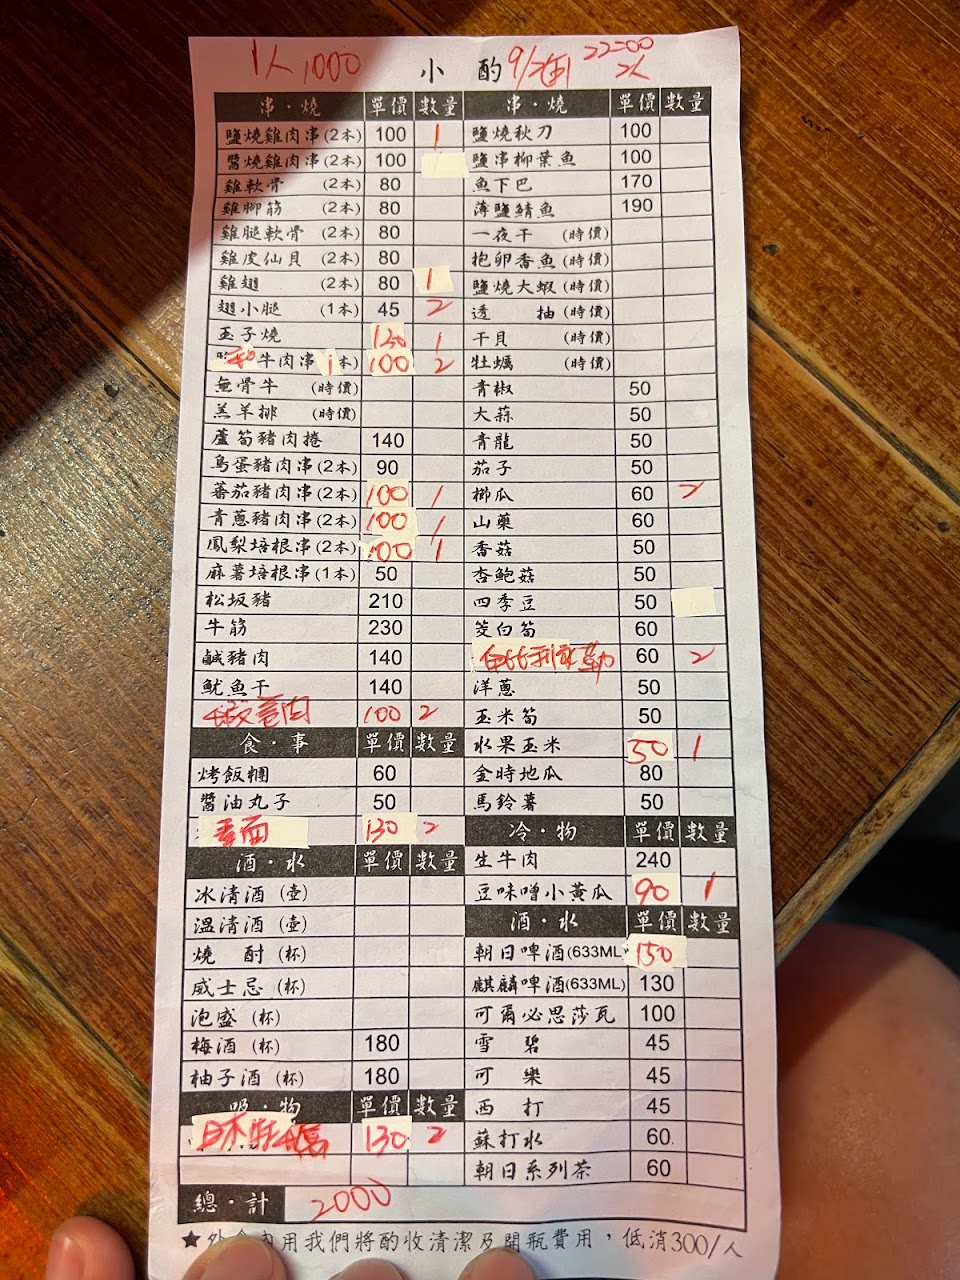 1人 1000 小酌 9/2(五) 22:00
2人
串·燒 單價 數量
鹽燒雞肉串(2本) 100 1
醬燒雞肉串(2本) 100
雞軟骨 (2本) 80
雞腳筋 (2本) 80
雞腿軟骨 (2本) 80
雞皮仙貝 (2本) 80
雞翅 (2本) 80 1
翅小腿 (1本) 45 2
玉子燒 130 1
和牛肉串 1本) 100 2
無骨牛 (時價)
羔羊排 (時價)
蘆筍豬肉捲 140
鳥蛋豬肉串(2本) 90
蕃茄豬肉串(2本) 100 1
青蔥豬肉串(2本) 100 1
鳳梨培根串(2本) 100 1
麻薯培根串(1本) 50
松坂豬 210
牛筋 230
鹹豬肉 140
魷魚干 140
100 2
食·事 單價 數量
烤飯糰 60
醬油丸子 50
130 2
酒·水 單價 數量
冰清酒 (壺)
溫清酒 (壺)
燒酎 (杯)
威士忌 (杯)
泡盛 (杯)
梅酒 (杯) 180
柚子酒 (杯) 180
吸·物 單價 數量
日本牡蠣 130 2
總·計 2000
串·燒 單價 數量
鹽燒秋刀 100
鹽串柳葉魚 100
魚下巴 170
薄鹽鯖魚 190
一夜干 (時價)
抱卵香魚 (時價)
鹽燒大蝦 (時價)
透抽 (時價)
干貝 (時價)
牡蠣 (時價)
青椒 50
大蒜 50
青龍 50
茄子 50
櫛瓜 60 2
山藥 60
香菇 50
杏鮑菇 50
四季豆 50
茭白筍 60
60 2
洋蔥 50
玉米筍 50
水果玉米 50 1
金時地瓜 80
馬鈴薯 50
冷·物 單價 數量
生牛肉 240
豆味噌小黃瓜 90 1
酒·水 單價 數量
朝日啤酒(633ML) 150
麒麟啤酒(633ML) 130
可爾必思莎瓦 100
雪碧 45
可樂 45
西打 45
蘇打水 60
朝日系列茶 60
★外食內用我們將酌收清潔及開瓶費用，低消300/人